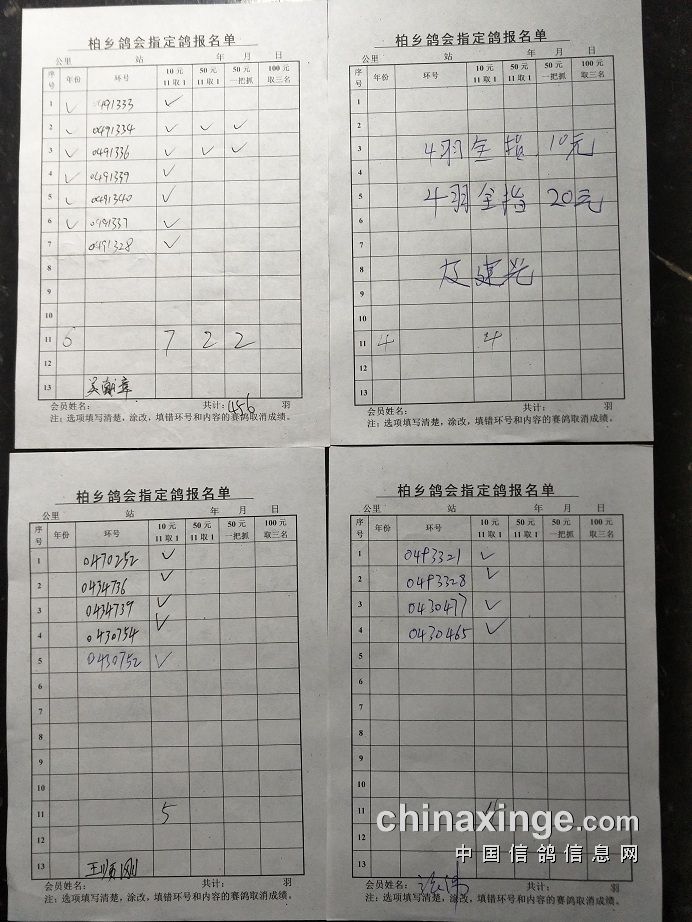 柏乡鸽会指定鸽报名单
公里 站 年 月 日
序号 年份 环号 10元 11取1 50元 11取1 50元 一把抓 100元 取三名
1 ✓ 0491333 ✓
2 ✓ 0491334 ✓ ✓ ✓
3 ✓ 0491336 ✓ ✓ ✓
4 ✓ 0491339 ✓
5 ✓ 0491340 ✓
6 ✓ 0491337 ✓
7 0491328 ✓
8
9
10
11 6 7 2 2
12
13
会员姓名： 共计： 羽
注：选项填写清楚，涂改，填错环号和内容的赛鸽取消成绩。
柏乡鸽会指定鸽报名单
公里 站 年 月 日
序号 年份 环号 10元 11取1 50元 11取1 50元 一把抓 100元 取三名
1
2
3 4羽全指 10元
4
5 4羽全指 20元
6
7
8
9
10
11 4 4
12
13
会员姓名： 共计： 羽
注：选项填写清楚，涂改，填错环号和内容的赛鸽取消成绩。
柏乡鸽会指定鸽报名单
公里 站 年 月 日
序号 年份 环号 10元 11取1 50元 11取1 50元 一把抓 100元 取三名
1 0470252 ✓
2 0434736 ✓
3 0434739 ✓
4 0430754 ✓
5 0430752 ✓
6
7
8
9
10
11 5
12
13 王顺刚
会员姓名： 共计： 羽
注：选项填写清楚，涂改，填错环号和内容的赛鸽取消成绩。
柏乡鸽会指定鸽报名单
公里 站 年 月 日
序号 年份 环号 10元 11取1 50元 11取1 50元 一把抓 100元 取三名
1 0493321 ✓
2 0493328 ✓
3 0430477 ✓
4 0430465 ✓
5
6
7
8
9
10
11
12
13
会员姓名： 共计： 羽
注：选项填写清楚，涂改，填错环号和内容的赛鸽取消成绩。
chinaxinge.com
中国信鸽信息网